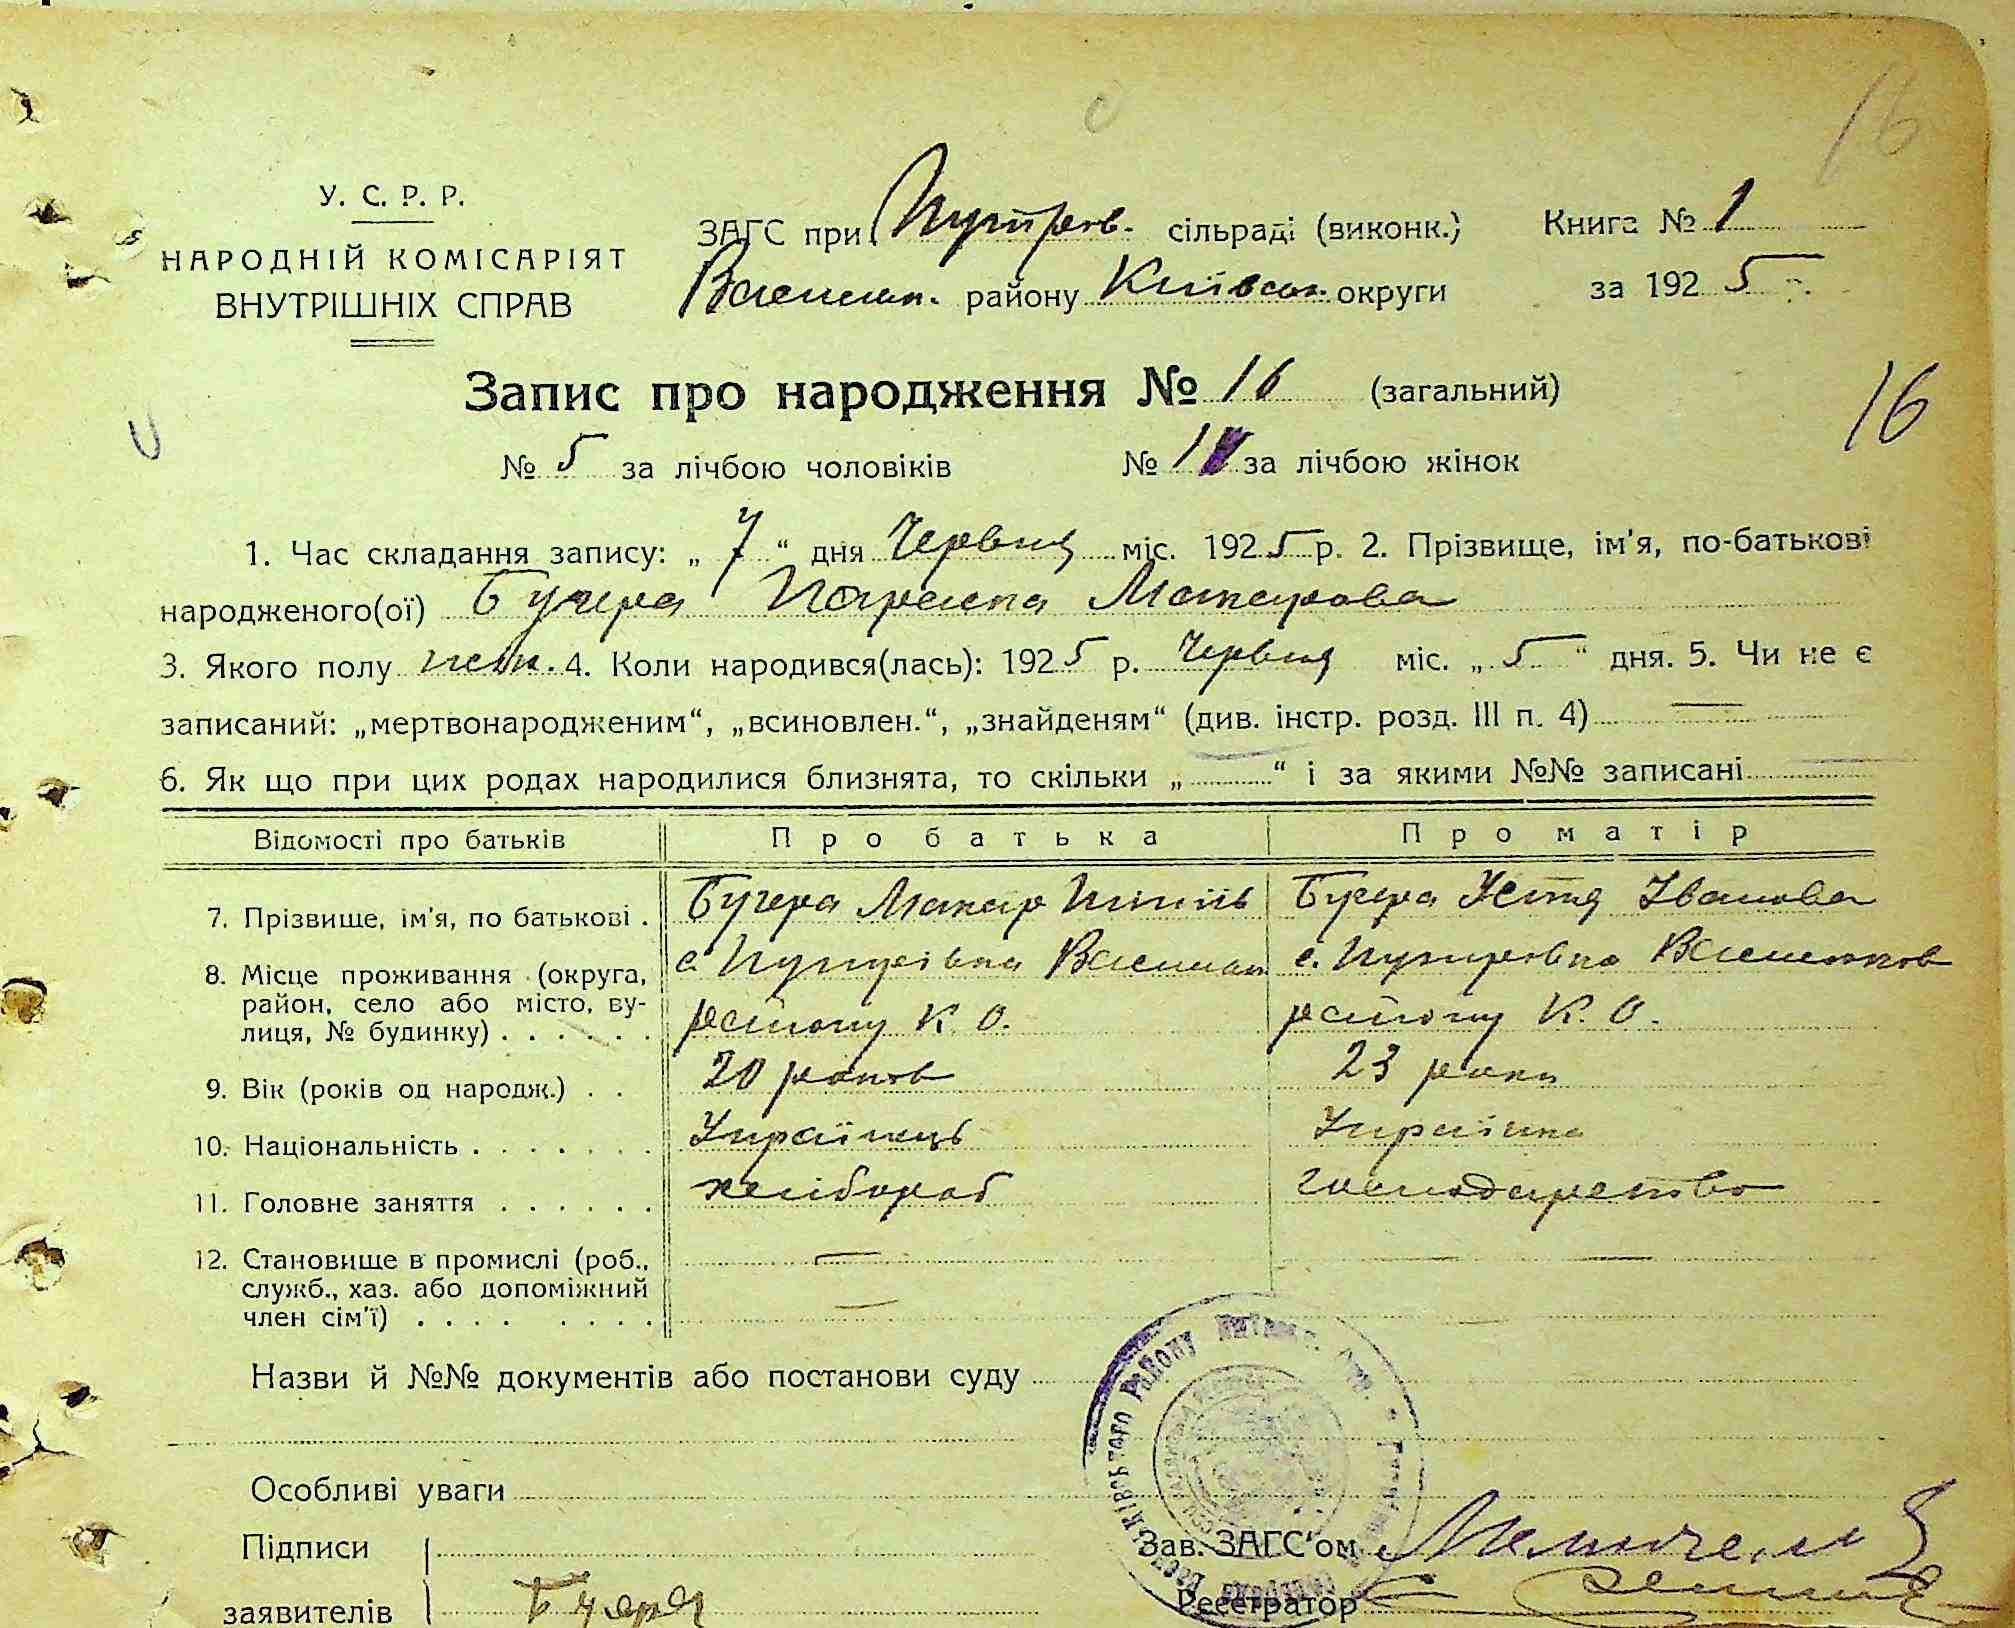 16
У. С. Р. Р.
НАРОДНІЙ КОМІСАРІЯТ
ВНУТРІШНІХ СПРАВ
ЗАГС при Путров. сільраді (виконк.) Книга № 1
Васильк. району Київськ. округи за 1925 р.
Запис про народження № 16 (загальний)
16
№ 5 за лічбою чоловіків № 11 за лічбою жінок
1. Час складання запису: „ 7 “ дня Червня міс. 1925 р. 2. Прізвище, ім'я, по-батькові
народженого(ої) Бучера Параска Макарова
3. Якого полу жін. 4. Коли народився(лась): 1925 р. Червня міс. „ 5 “ дня. 5. Чи не є
записаний: „мертвонародженим“, „всиновлен.“, „знайденям“ (див. інстр. розд. III п. 4)
6. Як що при цих родах народилися близнята, то скільки „ “ і за якими №№ записані
Відомості про батьків Про батька Про матір
7. Прізвище, ім'я, по батькові . Бучера Макар Бучера Устя Іванова
8. Місце проживання (округа, район, село або місто, вулиця, № будинку) . . . . . .
с. Путрівка Васильк с. Путровка Васильков
району К. О. району К. О.
9. Вік (років од народж.) . . 20 роков 23 роки
10. Національність . . . . . . . Українець Українка
11. Головне заняття . . . . . . хлібороб господарство
12. Становище в промислі (роб., — —
служб., хаз. або допоміжний
член сім'ї) . . . . . . . . —
Назви й №№ документів або постанови суду
Особливі уваги
Підписи Зав. ЗАГС'ом
заявителів Бучера Реєстратор